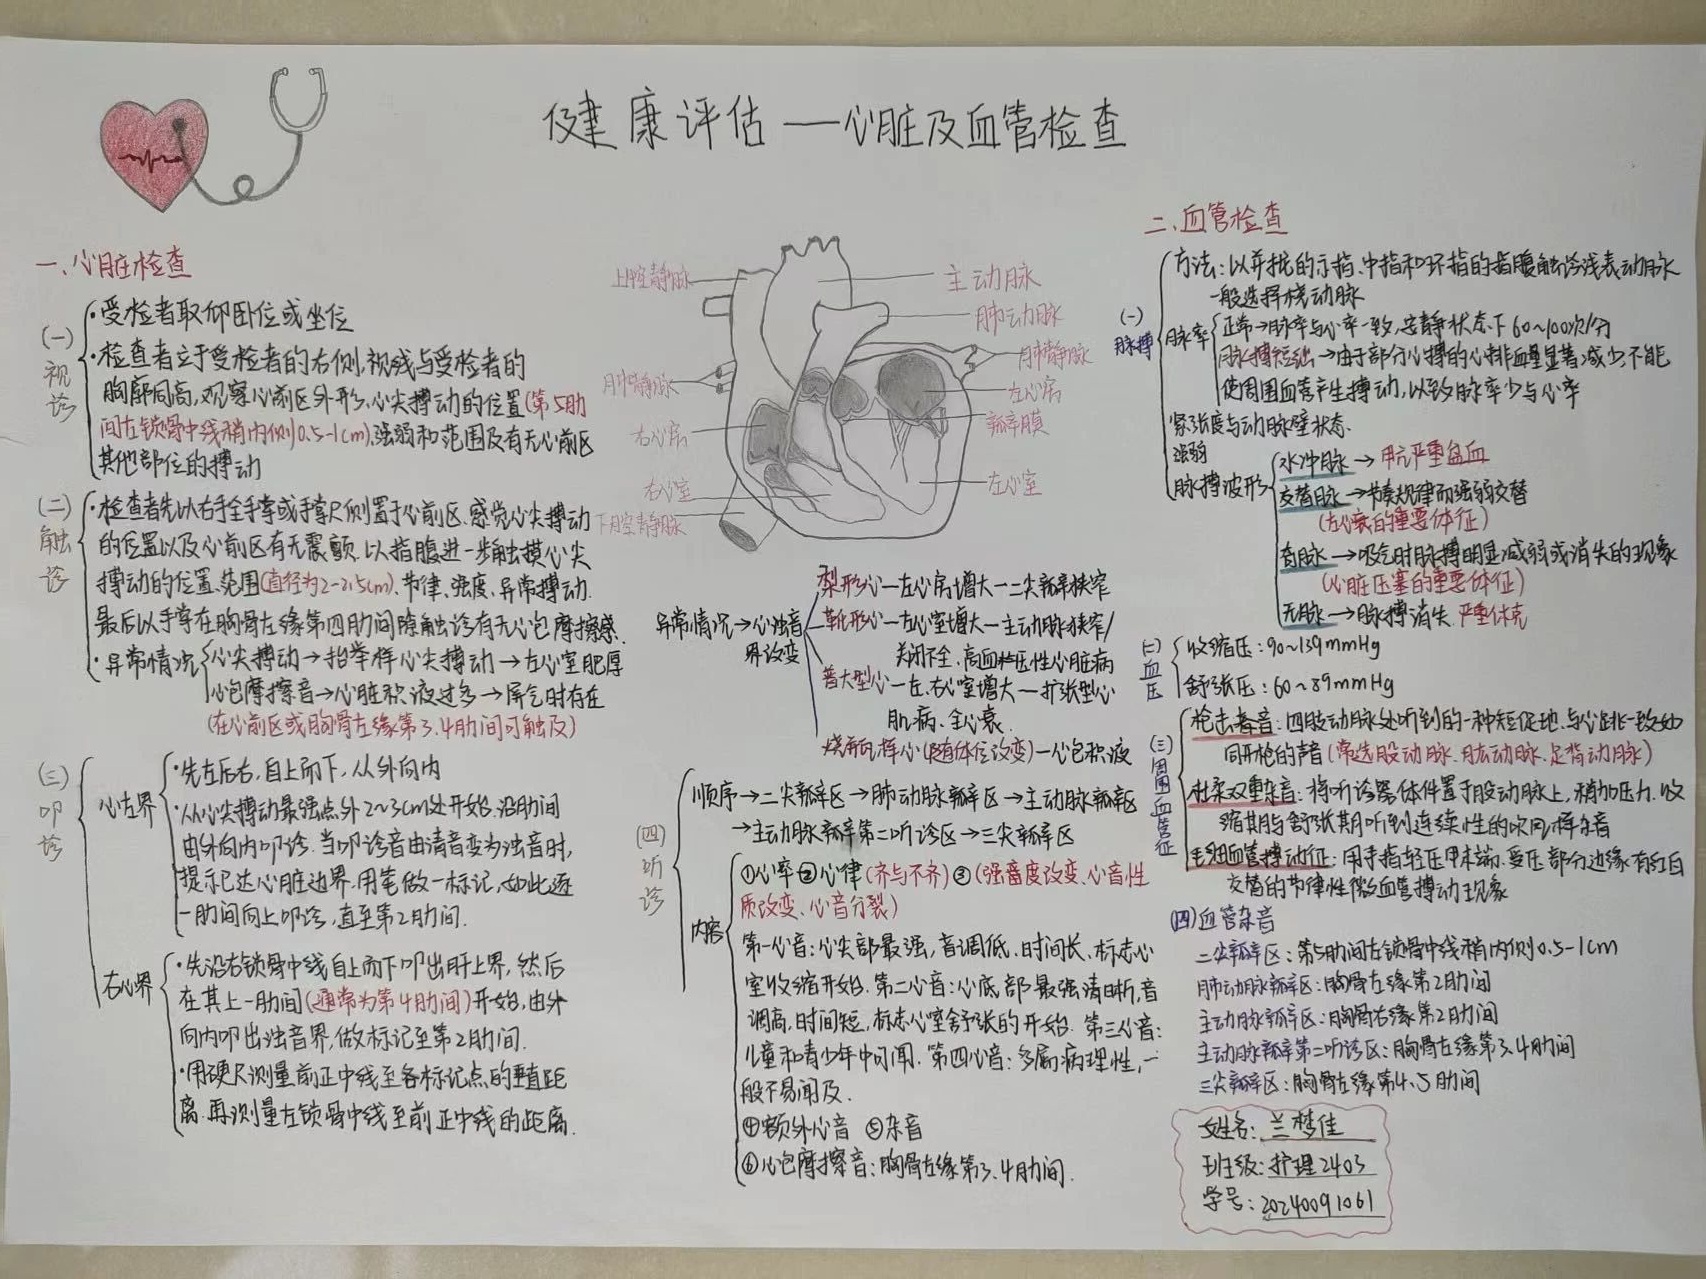 健康评估——心脏及血管检查
一、心脏检查
(一)视诊
·受检者取仰卧位或坐位
·检查者立于受检者的右侧,视线与受检者的
胸廓同高,观察心前区外形、心尖搏动的位置(第5肋
间左锁骨中线稍内侧0.5-1cm)、强弱和范围及有无心前区
其他部位的搏动
(二)触诊
·检查者先以右手全手掌或手掌尺侧置于心前区.感觉心尖搏动
的位置以及心前区有无震颤.以指腹进一步触摸心尖
搏动的位置、范围(直径为2-2.5cm)、节律、强度、异常搏动.
最后以手掌在胸骨左缘第四肋间隙触诊有无心包摩擦感.
·异常情况
心尖搏动→抬举样心尖搏动→左心室肥厚
心包摩擦音→心脏积液过多→屏气时存在
(在心前区或胸骨左缘第3、4肋间可触及)
(三)叩诊
心左界
·先左后右,自上而下,从外向内
·从心尖搏动最强点外2~3cm处开始.沿肋间
由外向内叩诊.当叩诊音由清音变为浊音时,
提示已达心脏边界.用笔做一标记,如此逐
一肋间向上叩诊,直至第2肋间.
右心界
·先沿右锁骨中线自上而下叩出肝上界,然后
在其上一肋间(通常为第4肋间)开始,由外
向内叩出浊音界,做标记至第2肋间.
·用硬尺测量前正中线至各标记点的垂直距
离.再测量左锁骨中线至前正中线的距离.
上腔静脉
主动脉
肺动脉
肺静脉
肺静脉
左心房
瓣膜
右心房
右心室
左心室
下腔静脉
异常情况→心浊音
界改变
梨形心—左心房增大—二尖瓣狭窄
靴形心—左心室增大—主动脉狭窄/
关闭不全、高血压性心脏病
普大型心—左、右心室增大—扩张型心
肌病、全心衰.
烧瓶样心(随体位改变)—心包积液
(四)听诊
顺序→二尖瓣区→肺动脉瓣区→主动脉瓣区
→主动脉瓣第二听诊区→三尖瓣区
内容
①心率②心律(齐与不齐)③(强度改变、心音性
质改变、心音分裂)
第一心音:心尖部最强,音调低.时间长、标志心
室收缩开始.第二心音:心底部最强清晰,音
调高,时间短,标志心室舒张的开始.第三心音:
儿童和青少年中可闻.第四心音:多属病理性,一
般不易闻及.
④额外心音 ⑤杂音
⑥心包摩擦音:胸骨左缘第3、4肋间.
二.血管检查
(一)脉搏
方法:以并拢的示指、中指和环指的指腹触诊浅表动脉
一般选择桡动脉
脉率
正常→脉率与心率一致,安静状态下60~100次/分
脉搏短绌→由于部分心搏的心排血量显著减少,不能
使周围血管产生搏动,以致脉率少与心率
紧张度与动脉壁状态.
强弱
脉搏波形
水冲脉→甲亢严重贫血
交替脉→节奏规律而强弱交替
(左心衰的重要体征)
奇脉→吸气时脉搏明显减弱或消失的现象
(心脏压塞的重要体征)
无脉→脉搏消失.严重休克
(二)血压
收缩压:90~139mmHg
舒张压:60~89mmHg
(三)周围血管征
枪击毒音:四肢动脉处听到的一种短促地、与心跳一致如
同开枪的声音(常选股动脉、肱动脉、足背动脉)
杜柔双重杂音:将听诊器体件置于股动脉上,稍加压力.收
缩期与舒张期听到连续性的吹风样杂音
毛细血管搏动征:用手指轻压甲末端.受压部分边缘有红白
交替的节律性微血管搏动现象
(四)血管杂音
二尖瓣区:第5肋间左锁骨中线稍内侧0.5-1cm
肺动脉瓣区:胸骨左缘第2肋间
主动脉瓣区:胸骨右缘第2肋间
主动脉瓣第二听诊区:胸骨左缘第3、4肋间
三尖瓣区:胸骨左缘第4、5肋间
姓名:兰梦佳
班级:护理2403
学号:20240091061